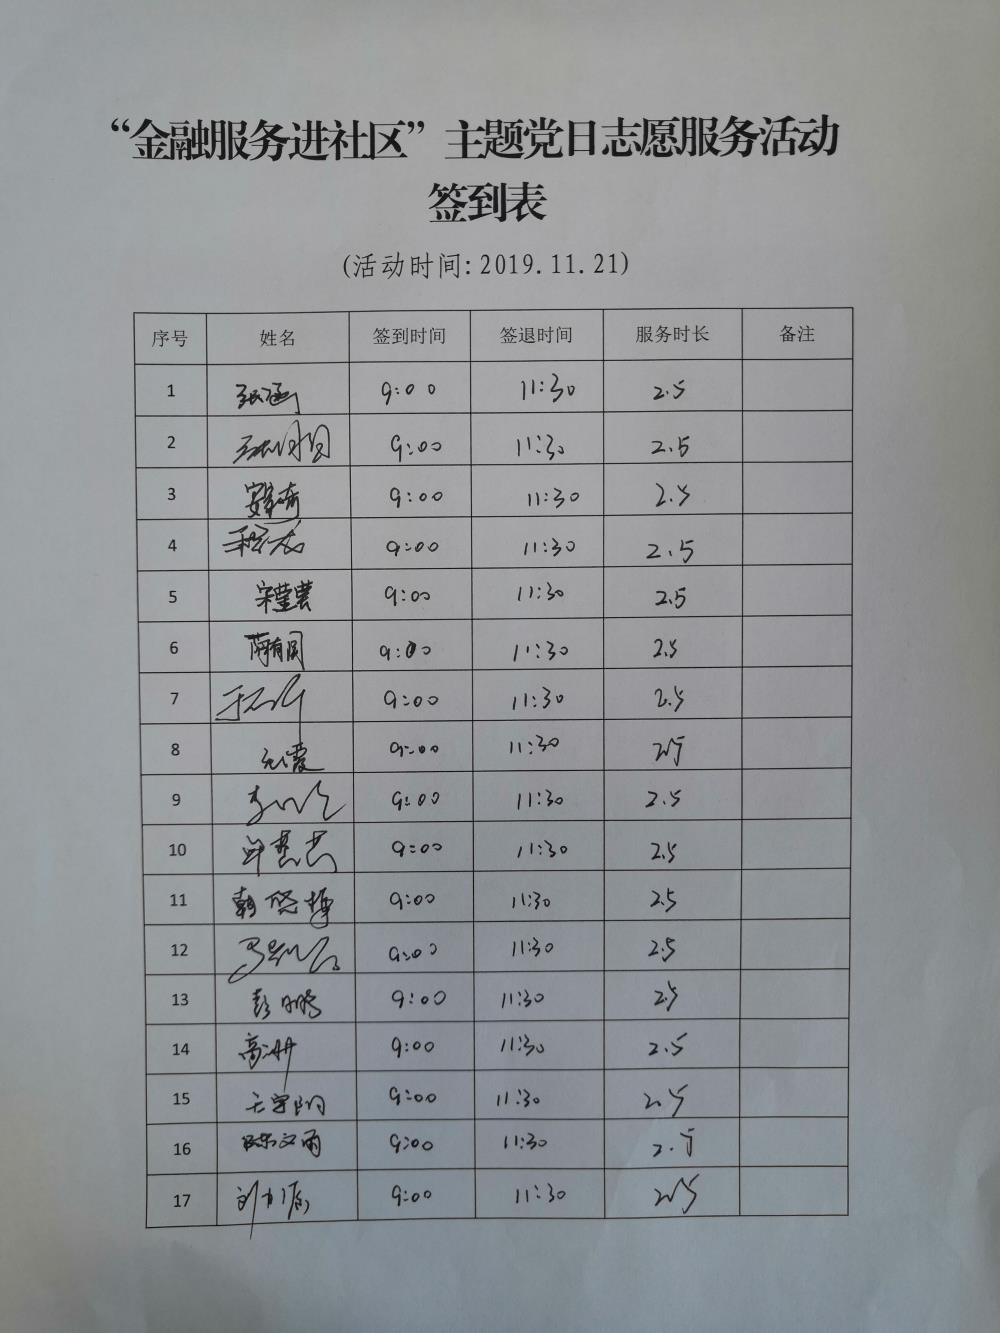 “金融服务进社区”主题党日志愿服务活动
签到表
(活动时间:2019.11.21)
序号 姓名 签到时间 签退时间 服务时长 备注
1 张涵 9:00 11:30 2.5
2 9:00 11:30 2.5
3 9:00 11:30 2.5
4 9:00 11:30 2.5
5 9:00 11:30 2.5
6 9:00 11:30 2.5
7 9:00 11:30 2.5
8 9:00 11:30 2.5
9 9:00 11:30 2.5
10 9:00 11:30 2.5
11 9:00 11:30 2.5
12 9:00 11:30 2.5
13 彭 9:00 11:30 2.5
14 高洲 9:00 11:30 2.5
15 9:00 11:30 2.5
16 陈文雨 9:00 11:30 2.5
17 刘 9:00 11:30 2.5